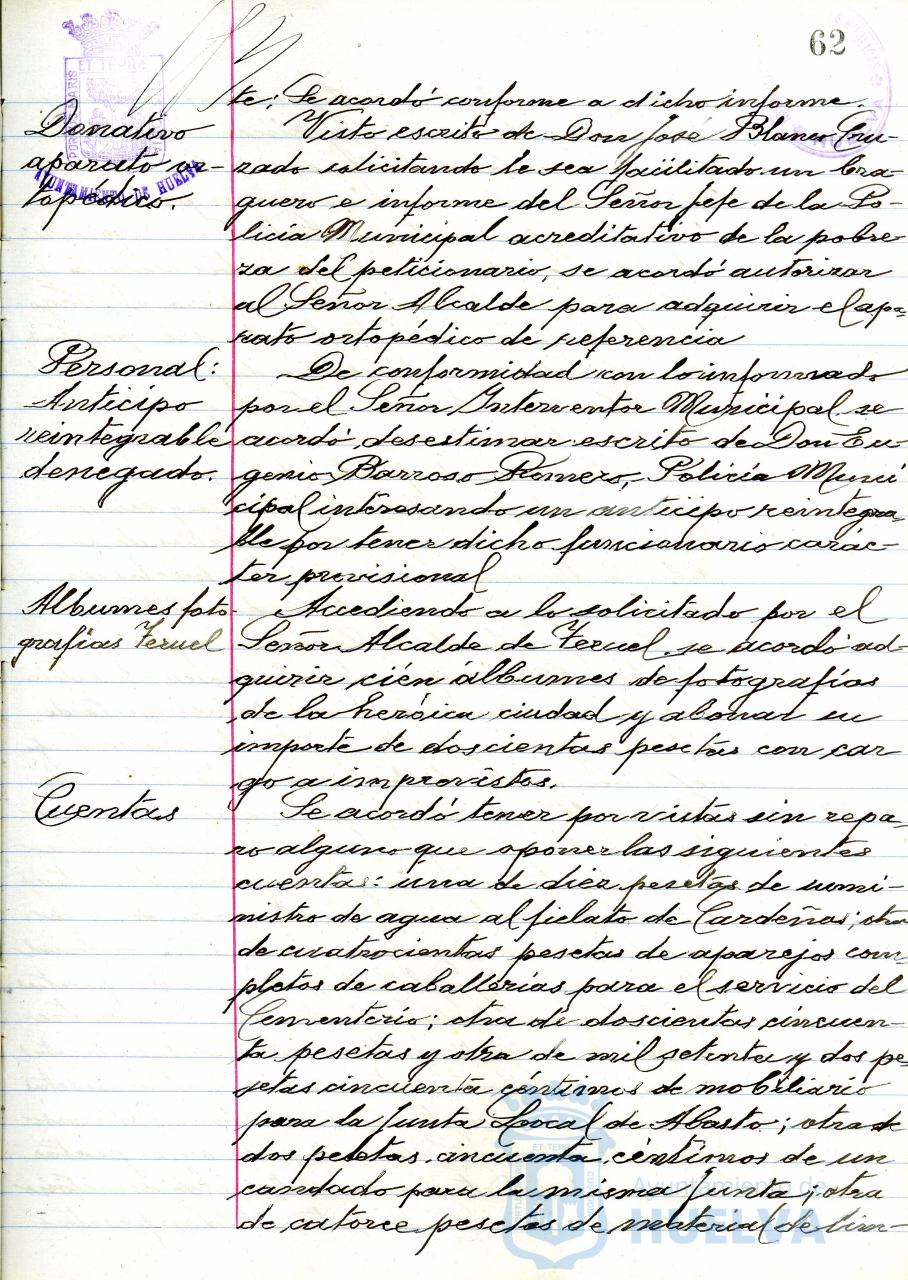 62
te; Se acordó conforme a dicho informe.
Donativo
aparato or-
topedico.
AYUNTAMIENTO DE HUELVA
Visto escrito de Don José Blanco Cru-
zado solicitando le sea facilitado un bra-
guero e informe del Señor Jefe de la Po-
licía Municipal acreditativo de la pobre-
za del peticionario, se acordó autorizar
al Señor Alcalde para adquirir el apa-
rato ortopédico de referencia
Personal:
Anticipo
reintegrable
denegado.
De conformidad con lo informado
por el Señor Interventor Municipal se
acordó desestimar escrito de Don Eu-
genio Barroso Romero, Policía Muni
cipal interesando un anticipo reintegra-
ble por tener dicho funcionario carác-
ter provisional
Albumes foto-
grafías Teruel
Accediendo a lo solicitado por el
Señor Alcalde de Teruel se acordó ad-
quirir cién álbumes de fotografías
de la heróica ciudad y abonar su
importe de doscientas pesetas con car
go a imprevistos.
Cuentas
Se acordó tener por vistas sin repa-
ro alguno que oponer las siguientes
cuentas: una de diez pesetas de sumi-
nistro de agua al fielato de Cardeñas; otra
de cuatrocientas pesetas de aparejos com-
pletos de caballerías para el servicio del
Cementerio; otra de doscientas cincuen-
ta pesetas y otra de mil setenta y dos pe-
setas cincuenta céntimos de mobiliario
para la Junta Local de Abasto; otra de
dos pesetas cincuenta céntimos de un
candado para la misma Junta; otra
de catorce pesetas de material de lim-
Ayuntamiento de
HUELVA